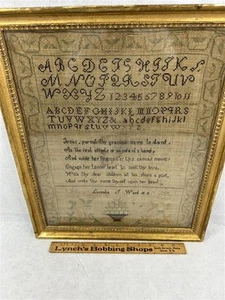 A B C D E F G H I K L
M N O P Q R S T U V
W X Y Z 1 2 3 4 5 6 7 8 9 10 11
A B C D E F G H I J K L M N O P Q R S
T U V W X Y Z & a b c d e f g h i j k l
m n o p q r s t u v w x y z
Jesus permit thy gracious name to stand
As the first efforts of an infant's hand
And while her fingers o'er this canvas move
Engage her tender heart to seek thy love
With thy dear children let her share a part
And write thy name thyself upon her heart
Lynch's Bobbing Shops